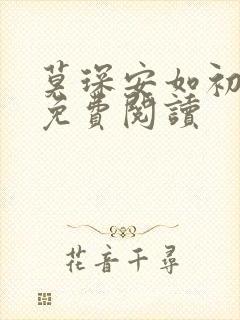 莫琛安如初
免費閱讀
花音千尋